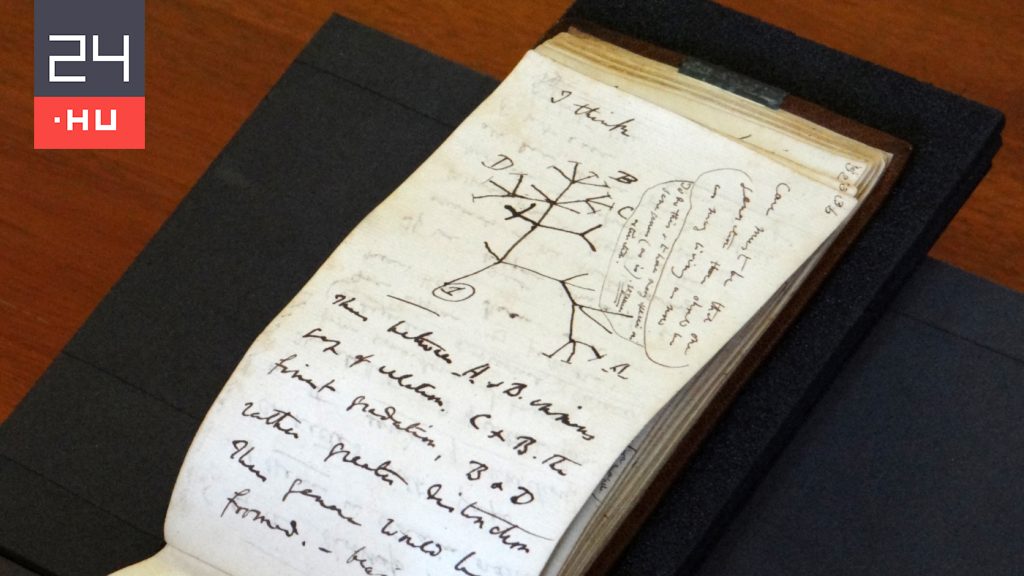 24
.HU
I think
D
B
C
A
1
Case must be that
one generation then should be
as many living as now
To do this & to have many species in
same genus (as is) requires
extinction
Thus between A & B. immens
gap of relation. C & B. The
finest gradation, B & D
rather greater distinction
Thus genera would be
formed. —